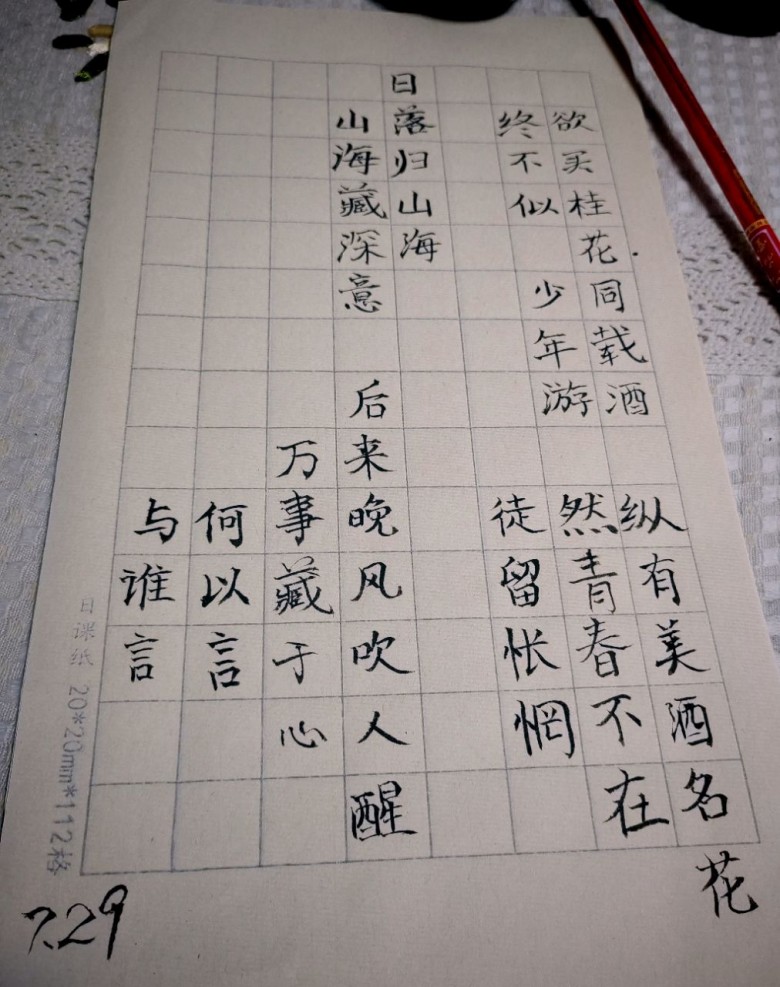 欲买桂花同载酒
终不似 少年游
纵有美酒名花
然青春不在
徒留怅惘
日落归山海
山海藏深意
后来晚风吹人醒
万事藏于心
何以言
与谁言
7.29
日课纸 20*20mm*112格